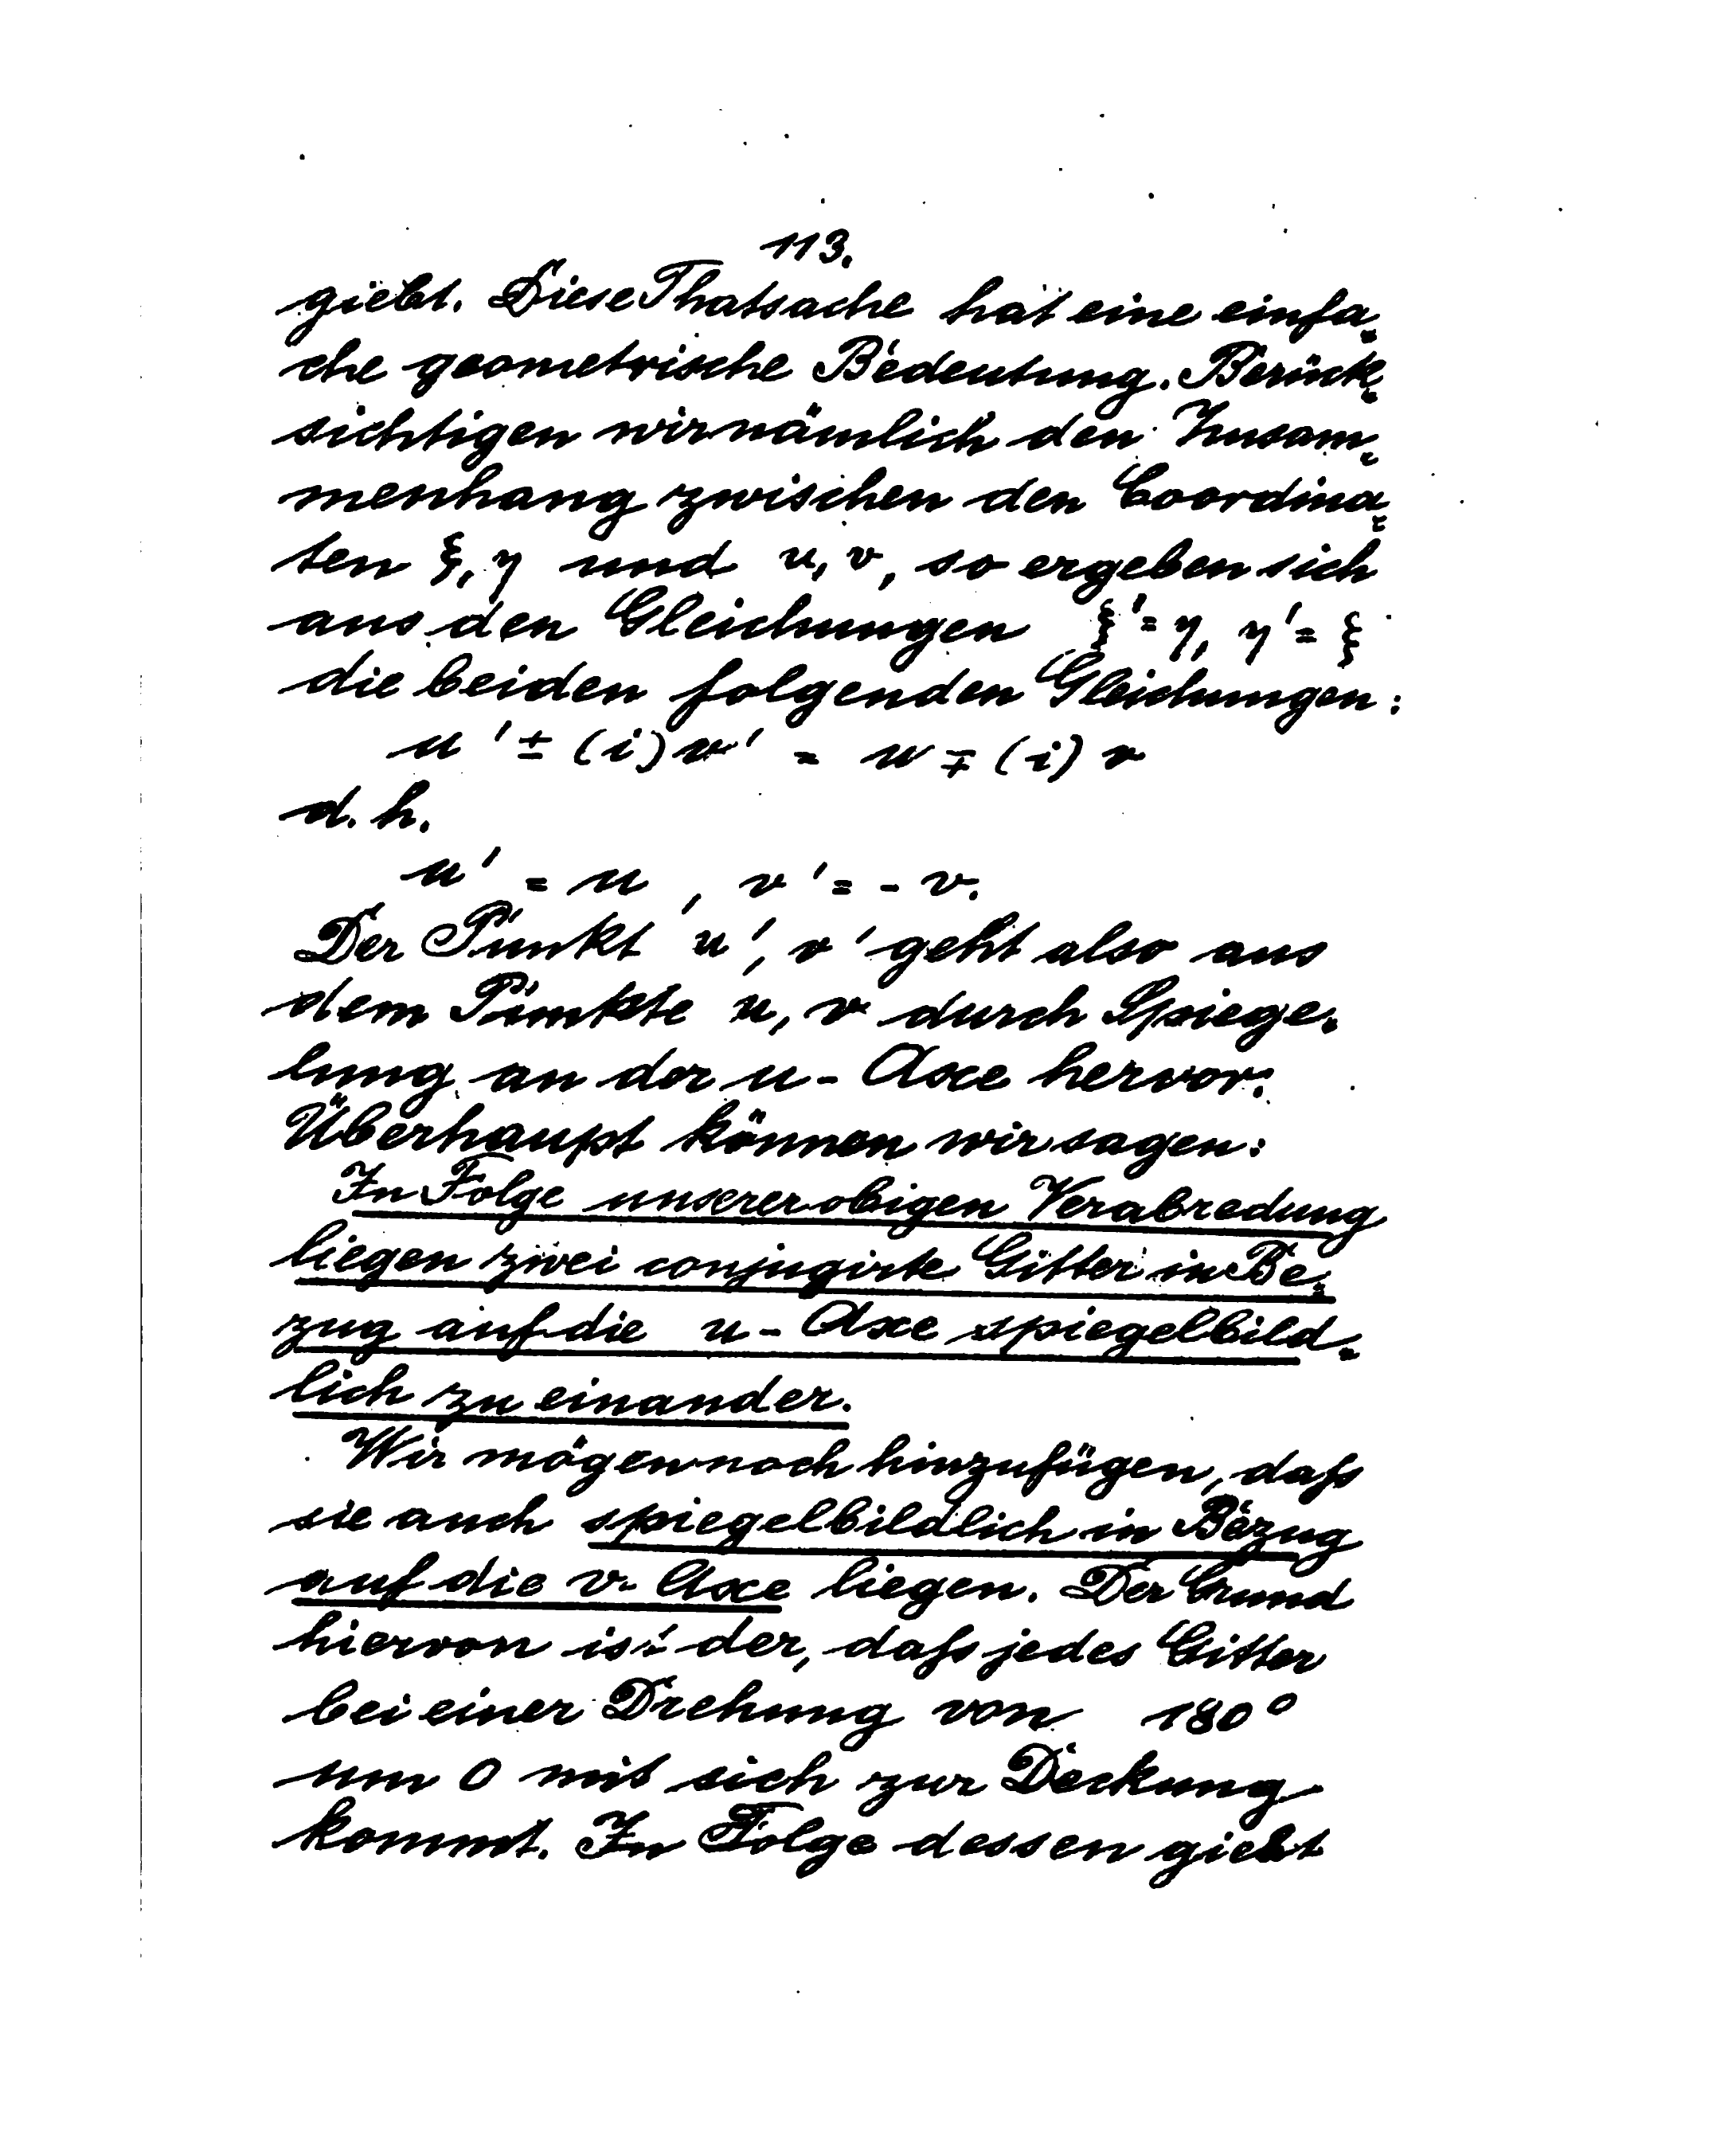 113.
giebt. Diese Thatsache hat eine einfa-
che geometrische Bedeutung. Berück-
sichtigen wir nämlich den Zusam-
menhang zwischen den Coordina-
ten ξ, η und u, v, so ergeben sich
aus den Gleichungen ξ' = η, η' = ξ
die beiden folgenden Gleichungen:
u' ± (i) v' = u ∓ (i) v
d. h.
u' = u, v' = - v.
Der Punkt u', v' geht also aus
dem Punkte u, v durch Spiege-
lung an der u-Axe hervor.
Überhaupt können wir sagen:
In Folge unserer obigen Verabredung
liegen zwei conjugirte Gitter in Be-
zug auf die u-Axe spiegelbild-
lich zu einander.
Wir mögen noch hinzufügen, daß
sie auch spiegelbildlich in Bezug
auf die v-Axe liegen. Der Grund
hiervon ist der, daß jedes Gitter
bei einer Drehung von 180°
um O mit sich zur Deckung
kommt. In Folge dessen giebt